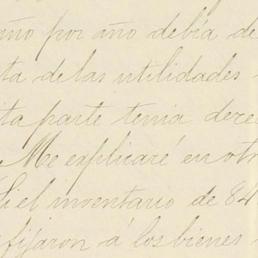 año por año debía de
ta de las utilidades
ta parte tenia dere
Me explicaré en otr
Si el inventario de 84
fijaron á los bienes